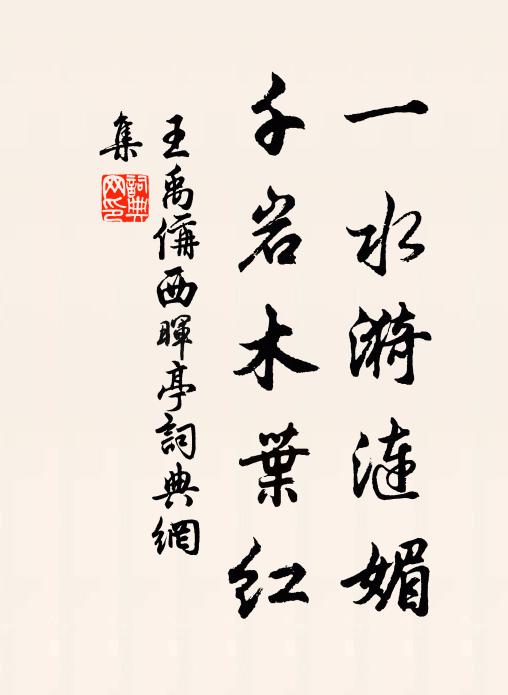 一水漪漣媚
千岩木葉紅
王禹偁西暉亭詞典網
集
詞典网印